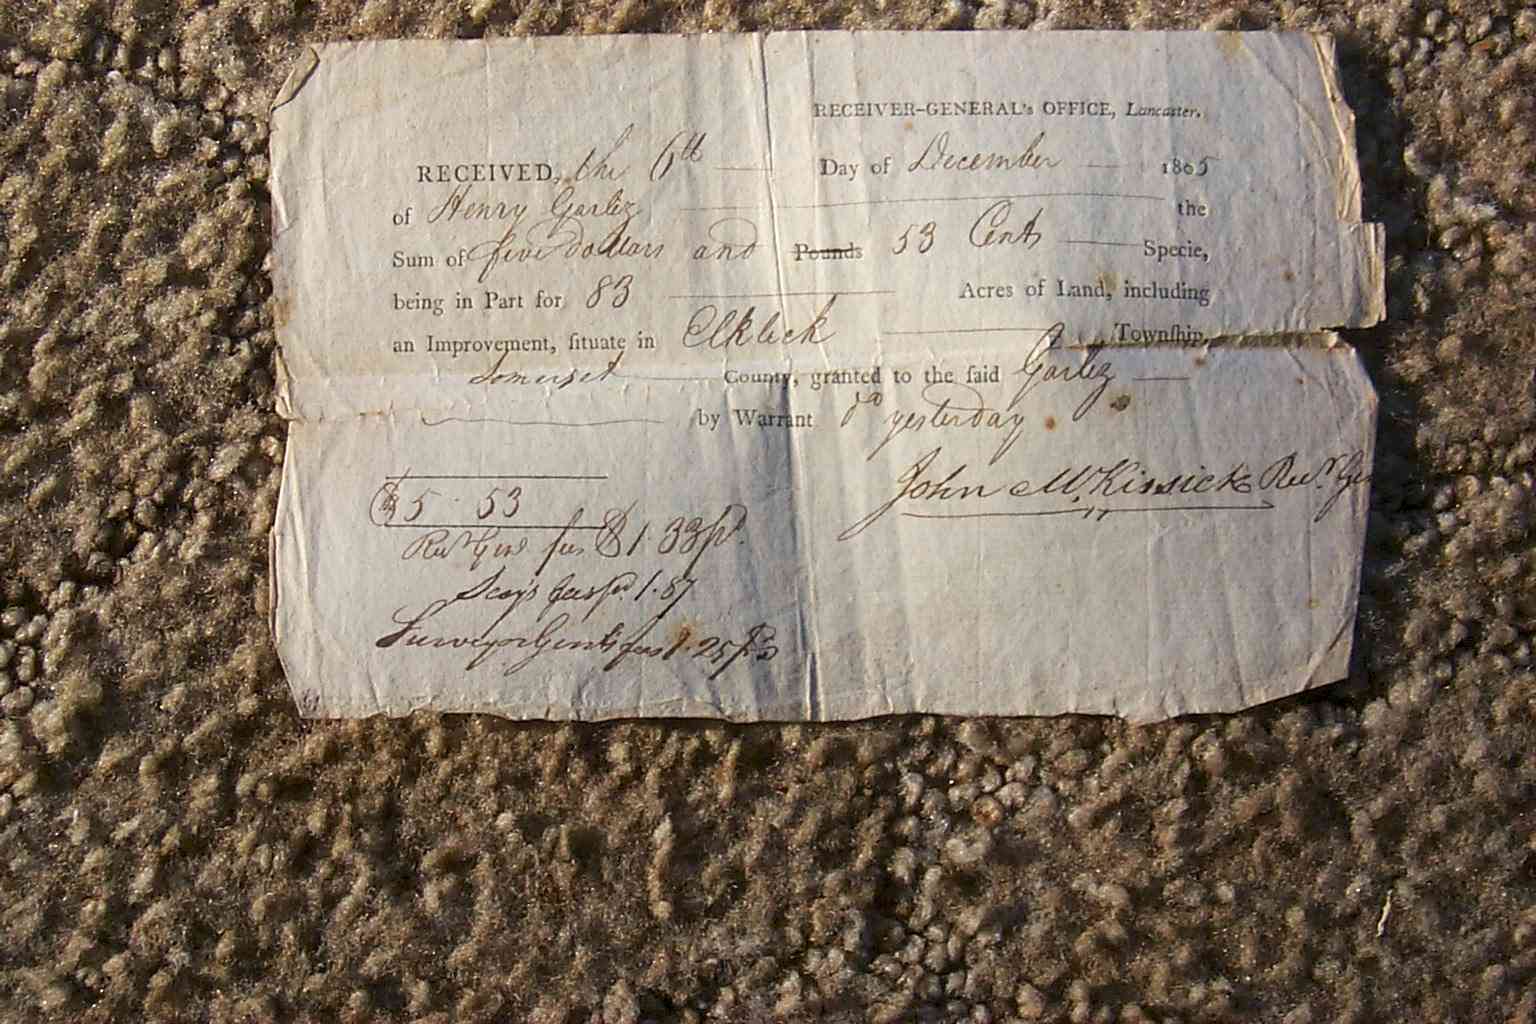 RECEIVER-GENERAL's OFFICE, Lancaster.
RECEIVED, the 6th Day of December 1805
of Henry Garlez the
Sum of five dollars and Pounds 53 Cents Specie,
being in Part for 83 Acres of Land, including
an Improvement, ſituate in Elklick Townſhip,
Somerset County, granted to the ſaid Garlez
by Warrant dd yesterday
John McKissick Recr. Gen
$5. 53
Recr Genl fees $1.33 pd.
Secys fees pd 1.87
Surveyor Genls fees 1.25 pd